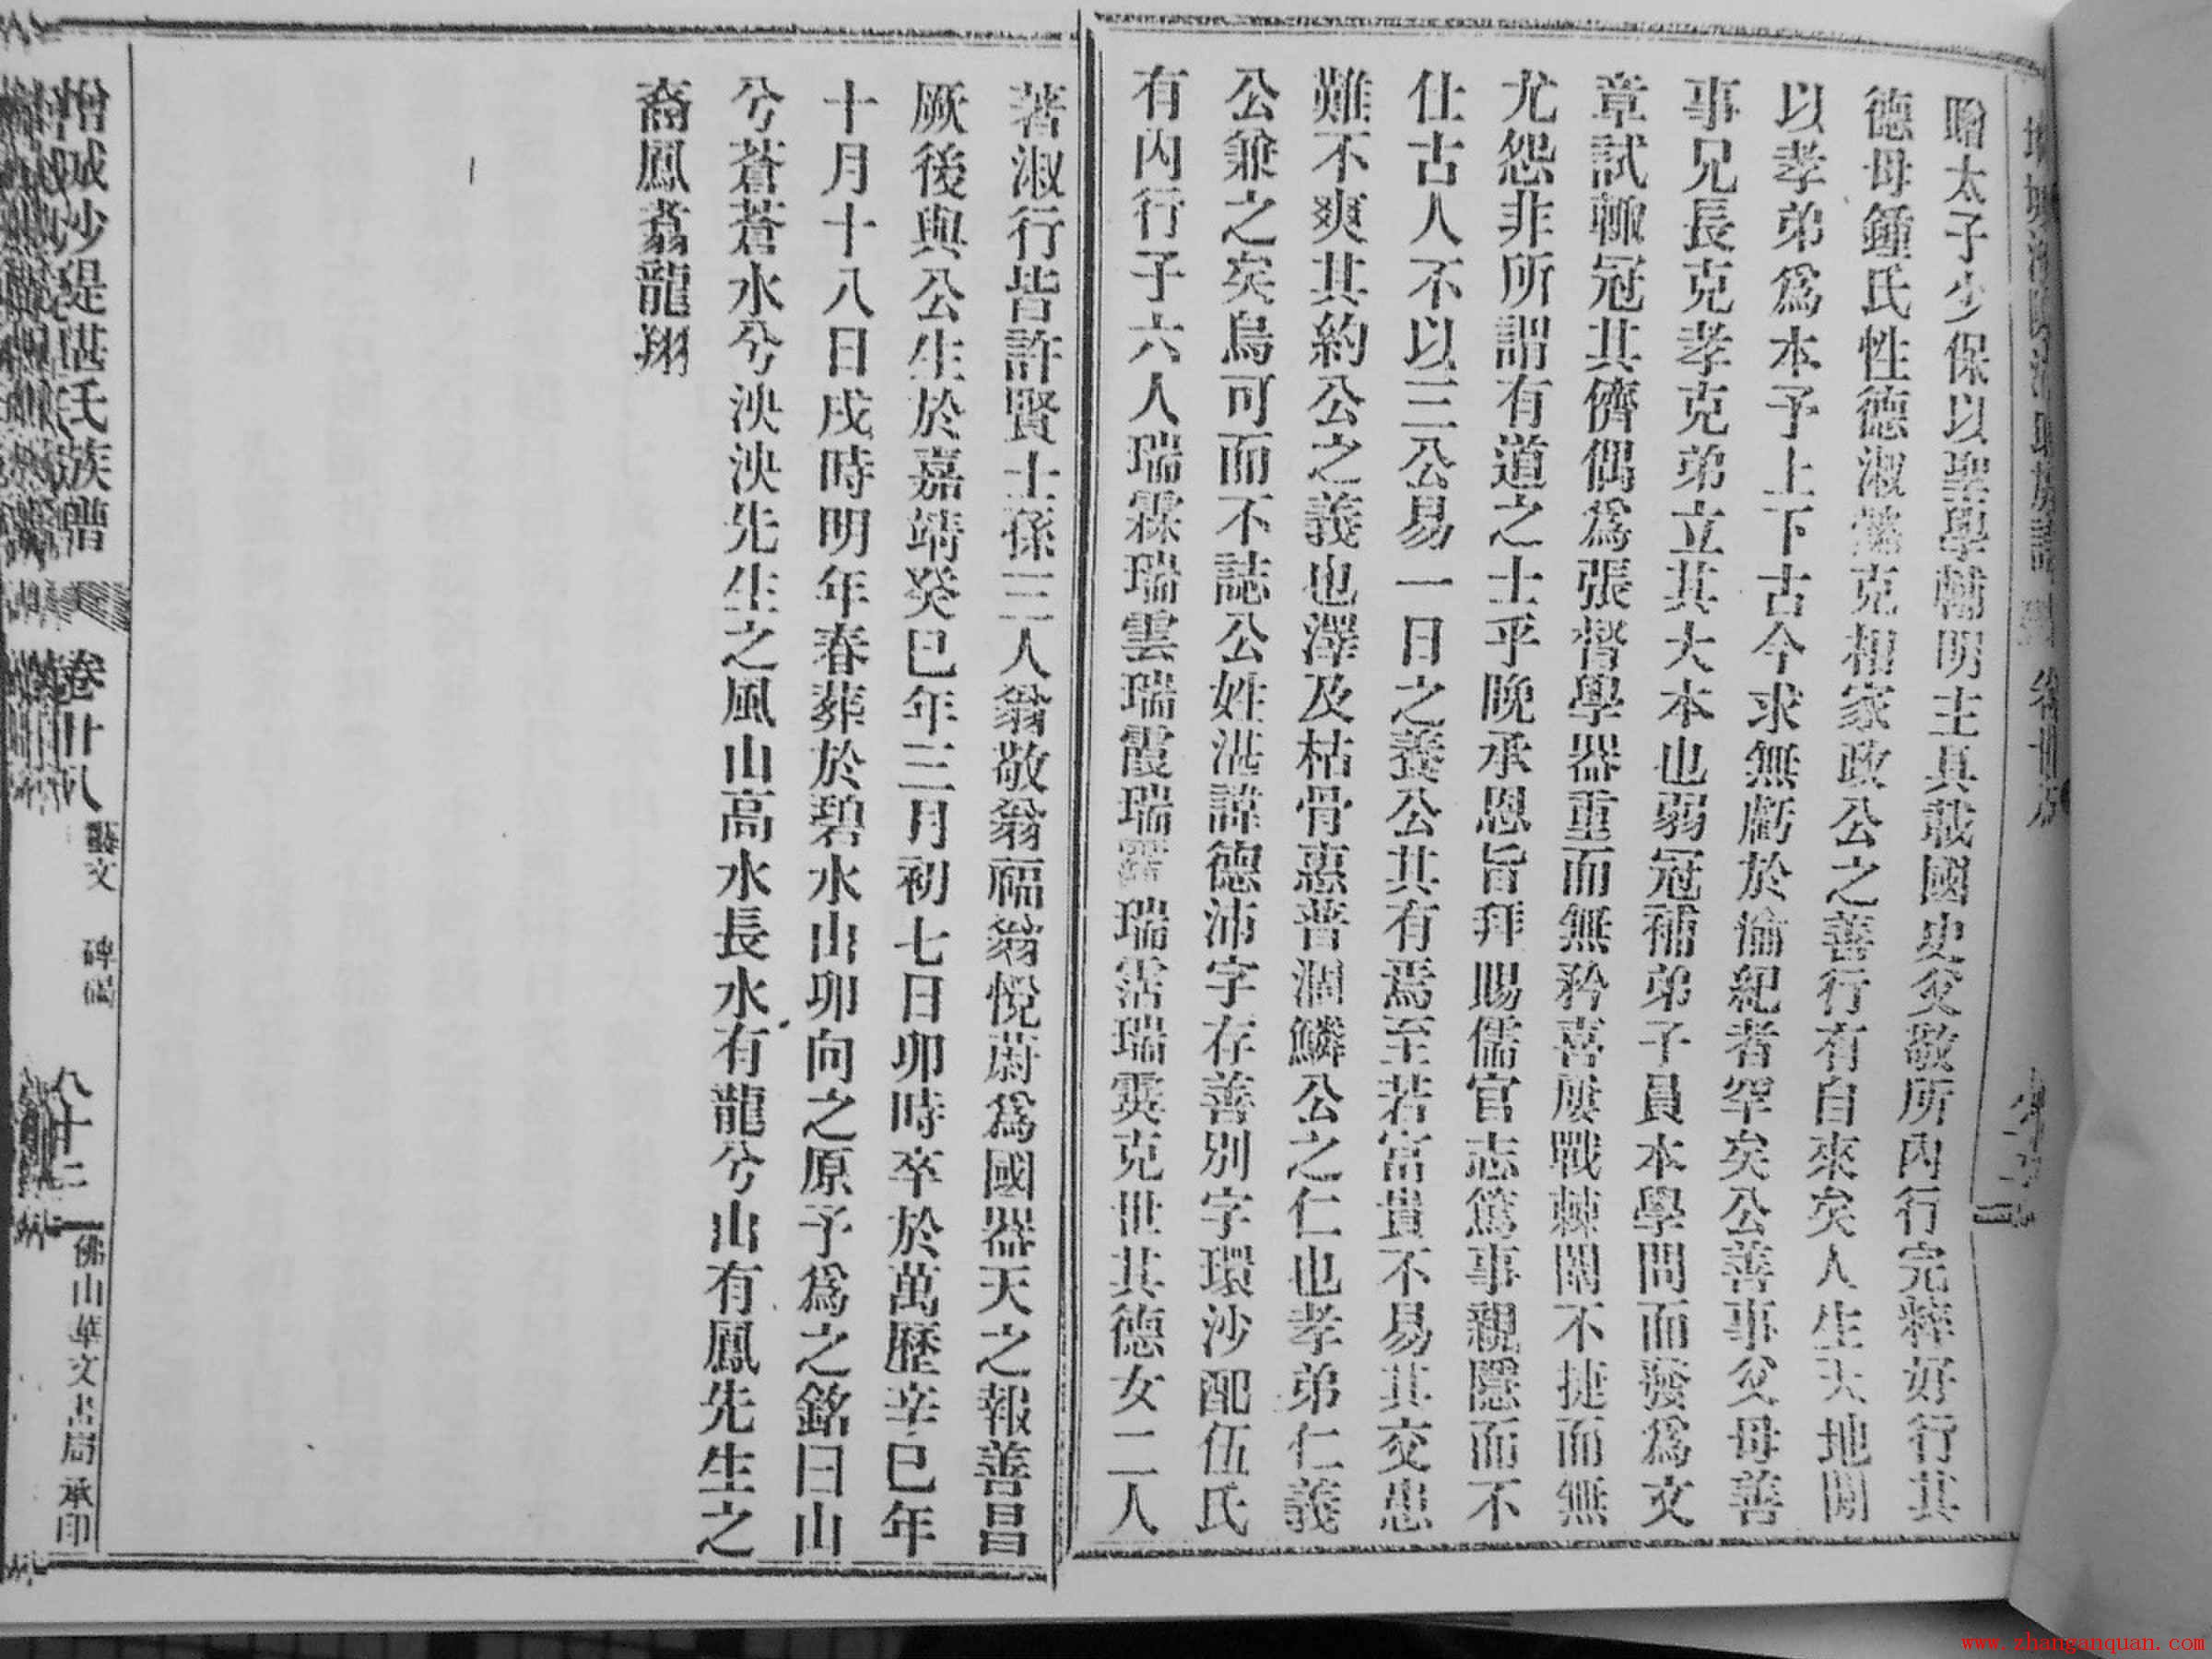 贈太子少保以聖學輔明主具載國史父敬所內行完粹好行其
德母鍾氏性德淑懿克相家政公之善行有自來矣人生天地間
以孝弟爲本予上下古今求無虧於倫紀者罕矣公善事父母善
事兄長克孝克弟立其大本也弱冠補弟子員本學問而發爲文
章試輙冠其儕偶爲張督學器重而無矜喜屢戰棘闈不捷而無
尤怨非所謂有道之士乎晚承恩旨拜賜儒官志篤事親隱而不
仕古人不以三公易一日之養公其有焉至若富貴不易其交患
難不爽其約公之義也澤及枯骨惠普涸鱗公之仁也孝弟仁義
公兼之矣烏可而不誌公姓湛諱德沛字存善別字環沙配伍氏
有內行子六人瑞霖瑞雲瑞霞瑞瑞霑瑞霙克世其德女二人
著淑行皆許賢士孫三人翁敬翁福翁悅蔚爲國器天之報善昌
厥後與公生於嘉靖癸巳年三月初七日卯時卒於萬歷辛巳年
十月十八日戌時明年春葬於碧水山卯向之原予爲之銘曰山
兮蒼蒼水兮泱泱先生之風山高水長水有龍兮山有鳳先生之
裔鳳翥龍翔
增城沙堤湛氏族譜 卷廿八 藝文 碑碣 八十二 佛山華文書局承印
www.zhanganquan.com